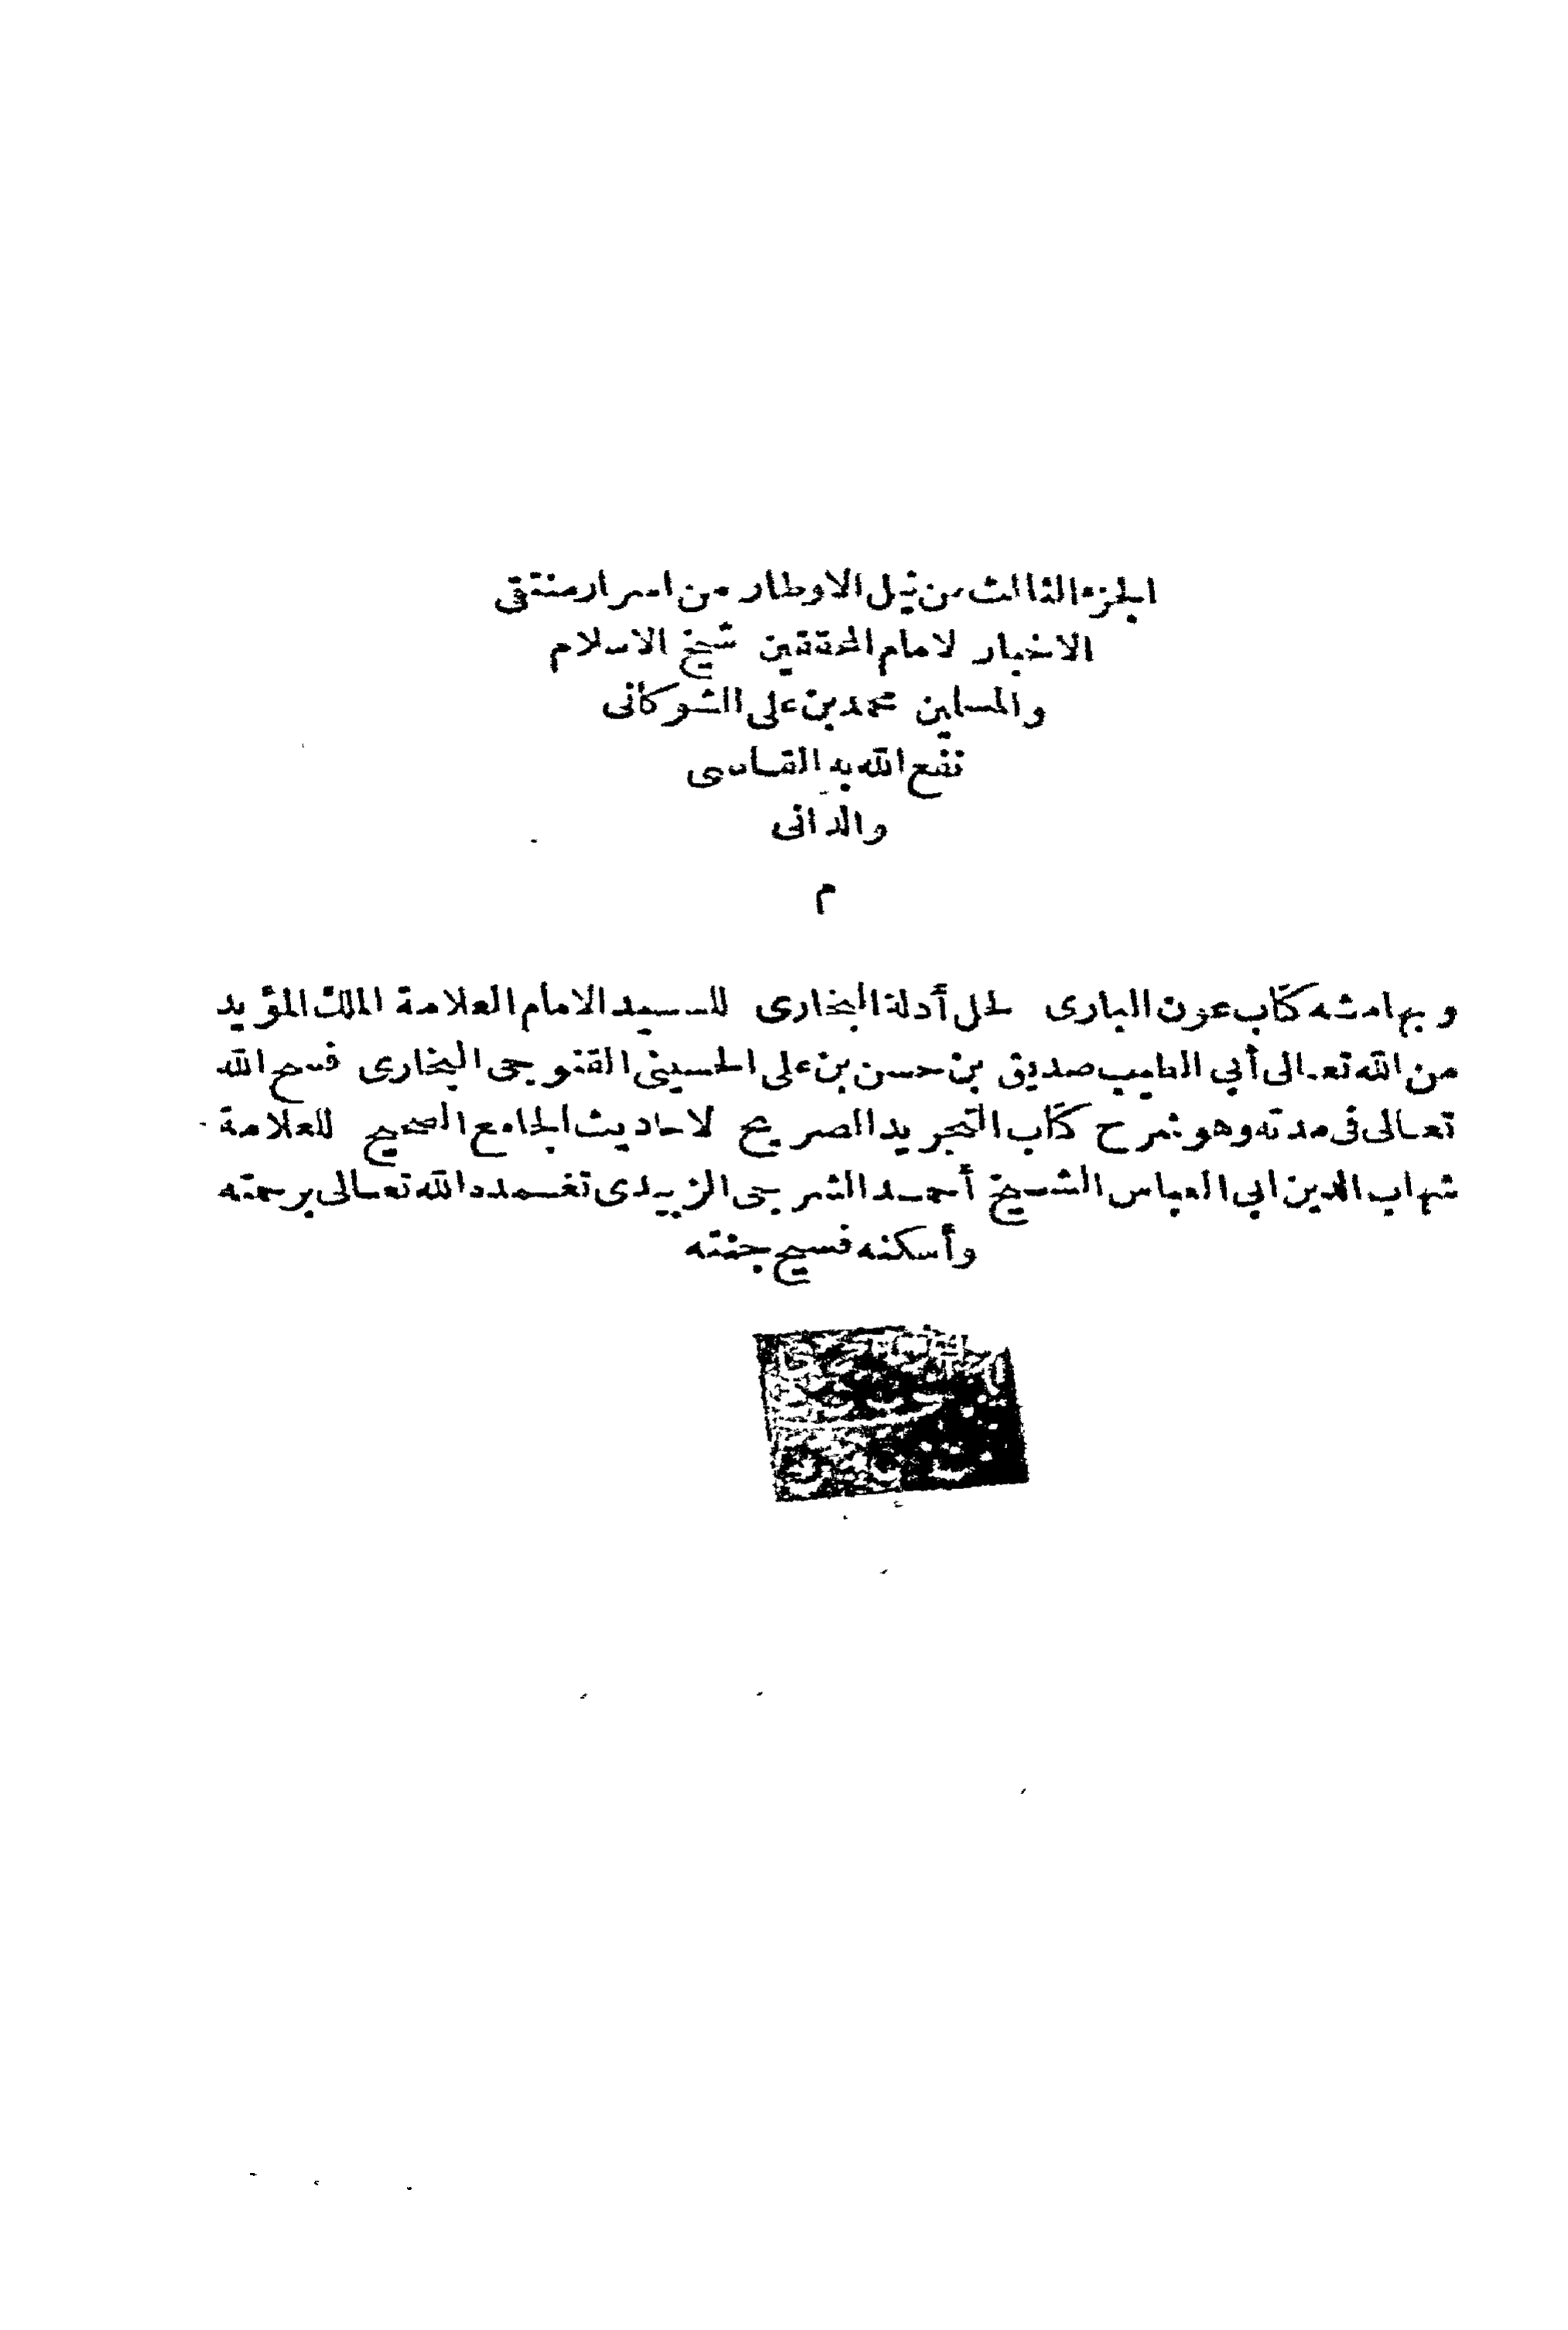 الجزء الثالث من نيل الاوطار من اسرار منتقى
الاخبار لامام المحققين شيخ الاسلام
والمسلمين محمد بن على الشوكانى
نفع الله به القاصى
والدانى
م
وبهامشه كتاب عون البارى لحل أدلة البخارى للسيد الامام العلامة الملك المؤيد
من الله تعالى أبي الطيب صديق بن حسن بن على الحسينى القنوجى البخارى فسح الله
تعالى فى مدته وهو شرح كتاب التجريد الصريح لاحاديث الجامع الصحيح للعلامة
شهاب الدين ابى العباس الشيخ أحمد الشرجى الزبيدى تغمده الله تعالى برحمته
وأسكنه فسيح جنته